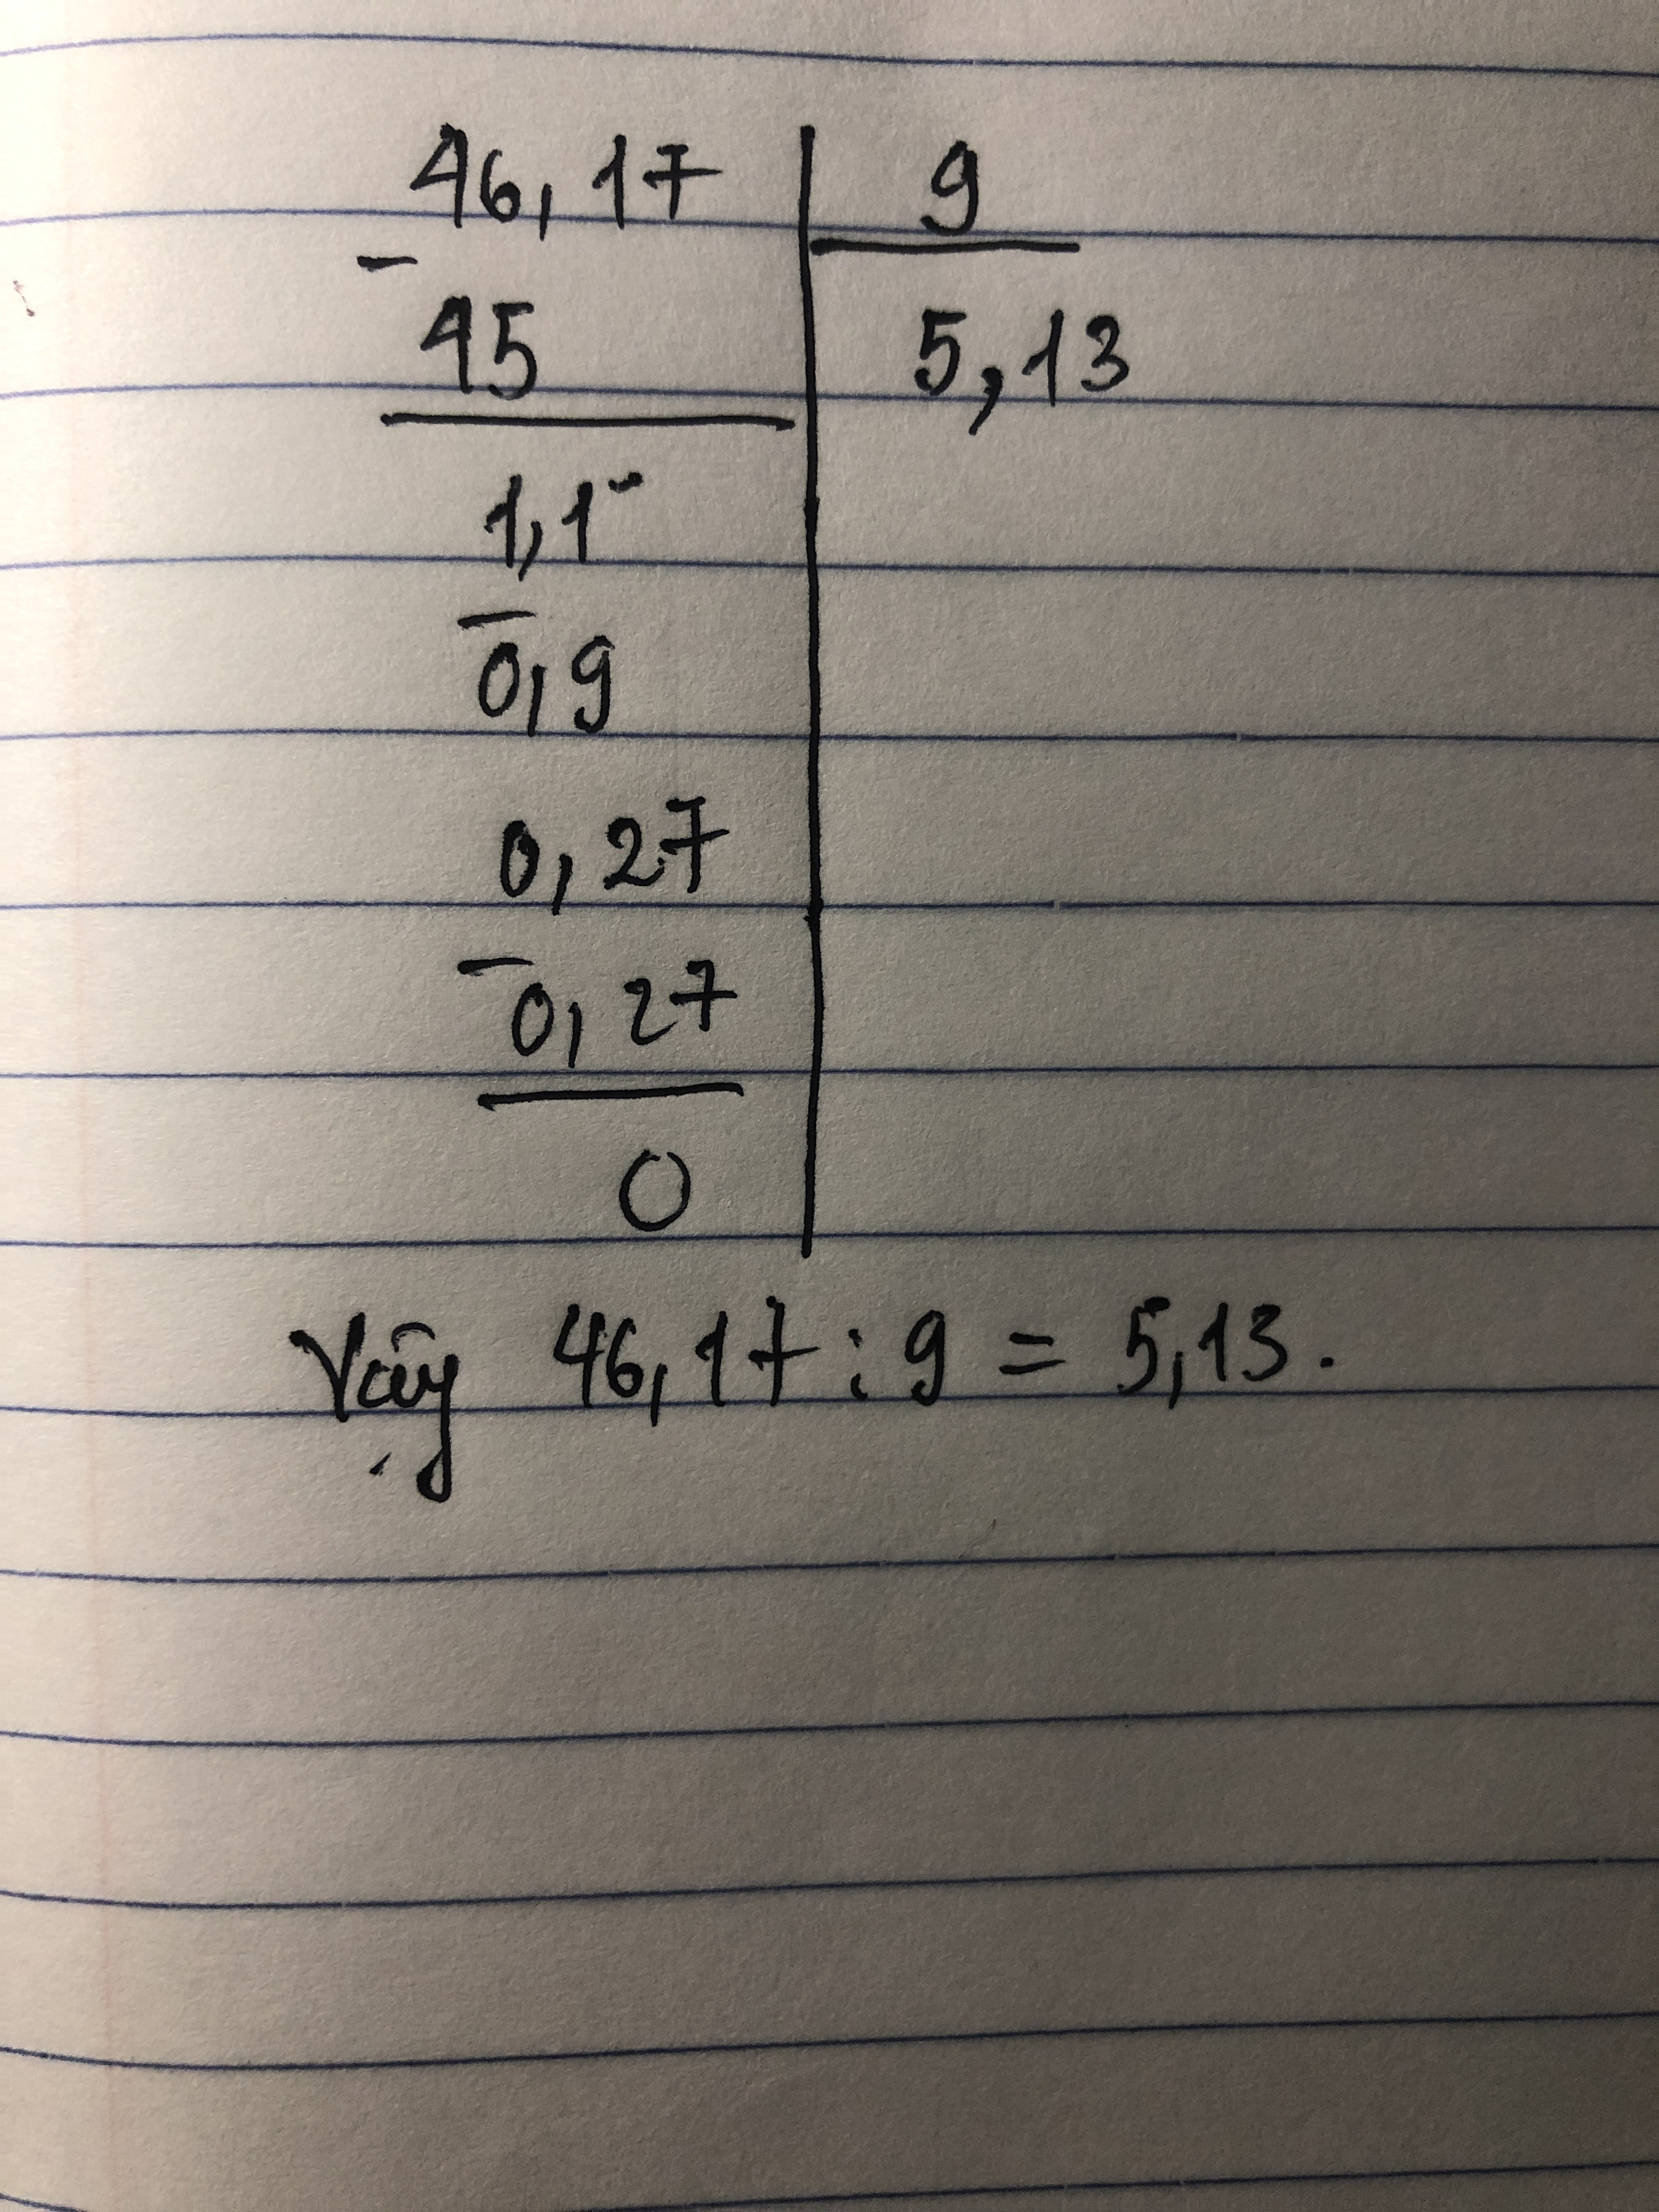 46,17 | 9
- 45 | 5,13
1,1
- 0,9
0,27
- 0,27
0
Vậy 46,17 : 9 = 5,13.